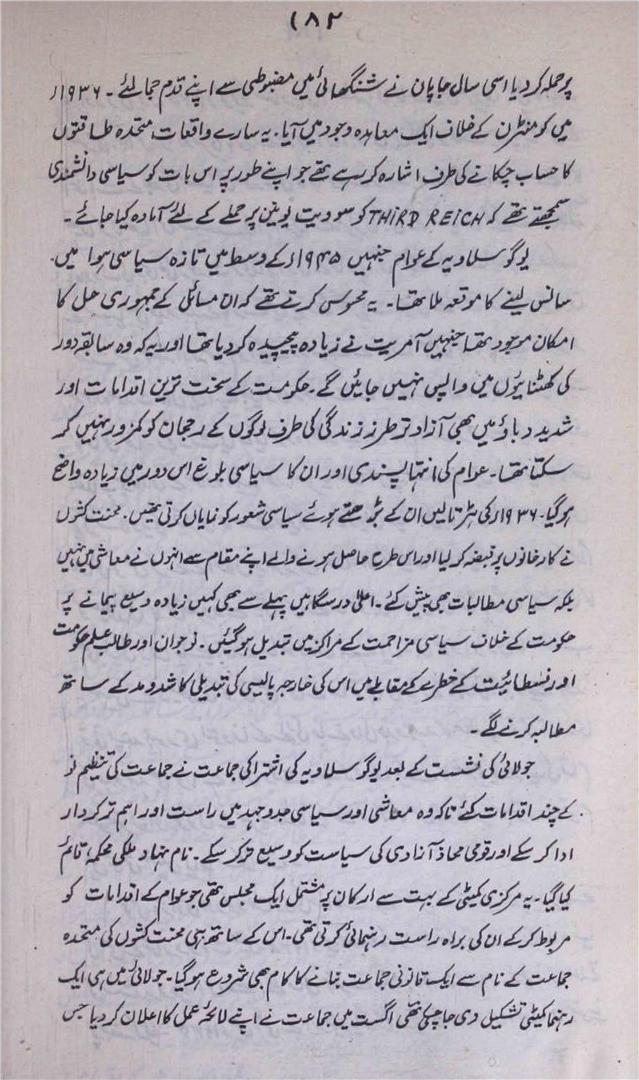 ۱۸۲
پر حملہ کر دیا اسی سال جاپان نے شنگھائی میں مضبوطی سے اپنے قدم جمالئے ۔ ۱۹۳۶ء
میں کومنٹرن کے خلاف ایک معاہدہ وجود میں آیا ۔ یہ سارے واقعات متحدہ طاقتوں
کا حساب چکانے کی طرف اشارہ کر رہے تھے جو اپنے طور پر اس بات کو سیاسی دانشمندی
سمجھتے تھے کہ THIRD REICH کو سوویت یونین پر حملے کے لئے آمادہ کیا جائے ۔
یوگوسلاویہ کے عوام جنہیں ۱۹۳۵ء کے وسط میں تازہ سیاسی ہوا میں
سانس لینے کا موقعہ ملا تھا ۔ یہ محسوس کرتے تھے کہ ان مسائل کے جمہوری حل کا
امکان موجود تھا جنہیں آمریت نے زیادہ پیچیدہ کر دیا تھا اور یہ کہ وہ سابقہ دور
کی کھٹنایوں میں واپس نہیں جائیں گے ۔ حکومت کے سخت ترین اقدامات اور
شدید دباؤ میں بھی آزاد تر طرز زندگی کی طرف لوگوں کے رجحان کو کمزور نہیں کر
سکتا تھا ۔ عوام کی انتہا پسندی اور ان کا سیاسی بلوغ اس دور میں زیادہ واضح
ہو گیا ۔ ۱۹۳۶ء کی ہڑتالیں ان کے بڑھتے ہوئے سیاسی شعور کو نمایاں کرتی تھیں ۔ محنت کشوں
نے کارخانوں پر قبضہ کر لیا اور اس طرح حاصل ہونے والے اپنے مقام سے انہوں نے معاشی ہی نہیں
بلکہ سیاسی مطالبات بھی پیش کئے ۔ اعلیٰ درسگاہیں پہلے سے بھی کہیں زیادہ وسیع پیمانے پر
حکومت کے خلاف سیاسی مزاحمت کے مراکز میں تبدیل ہو گئیں ۔ نوجوان اور طالب علم حکومت
اور فسطائیت کے خطرے کے مقابلے میں اس کی خارجہ پالیسی کی تبدیلی کا شدومد کے ساتھ
مطالبہ کرنے لگے ۔
جولائی کی نشست کے بعد یوگوسلاویہ کی اشتراکی جماعت نے جماعت کی تنظیم نو
کے چند اقدامات کئے تاکہ وہ معاشی اور سیاسی جدوجہد میں راست اور اہم تر کردار
ادا کر سکے اور قومی محاذ آزادی کی سیاست کو وسیع تر کر سکے ۔ نام نہاد ملکی محکمہ قائم
کیا گیا ۔ یہ مرکزی کمیٹی کے بہت سے ارکان پر مشتمل ایک مجلس تھی جو عوام کے اقدامات کو
مربوط کر کے ان کی براہ راست رہنمائی کرتی تھی ۔ اس کے ساتھ ہی محنت کشوں کی متحدہ
جماعت کے نام سے ایک قانونی جماعت بنانے کا کام بھی شروع ہو گیا ۔ جولائی میں ہی ایک
رہنما کمیٹی تشکیل دی جا چکی تھی اگست میں جماعت نے اپنے لائحہ عمل کا اعلان کر دیا جس